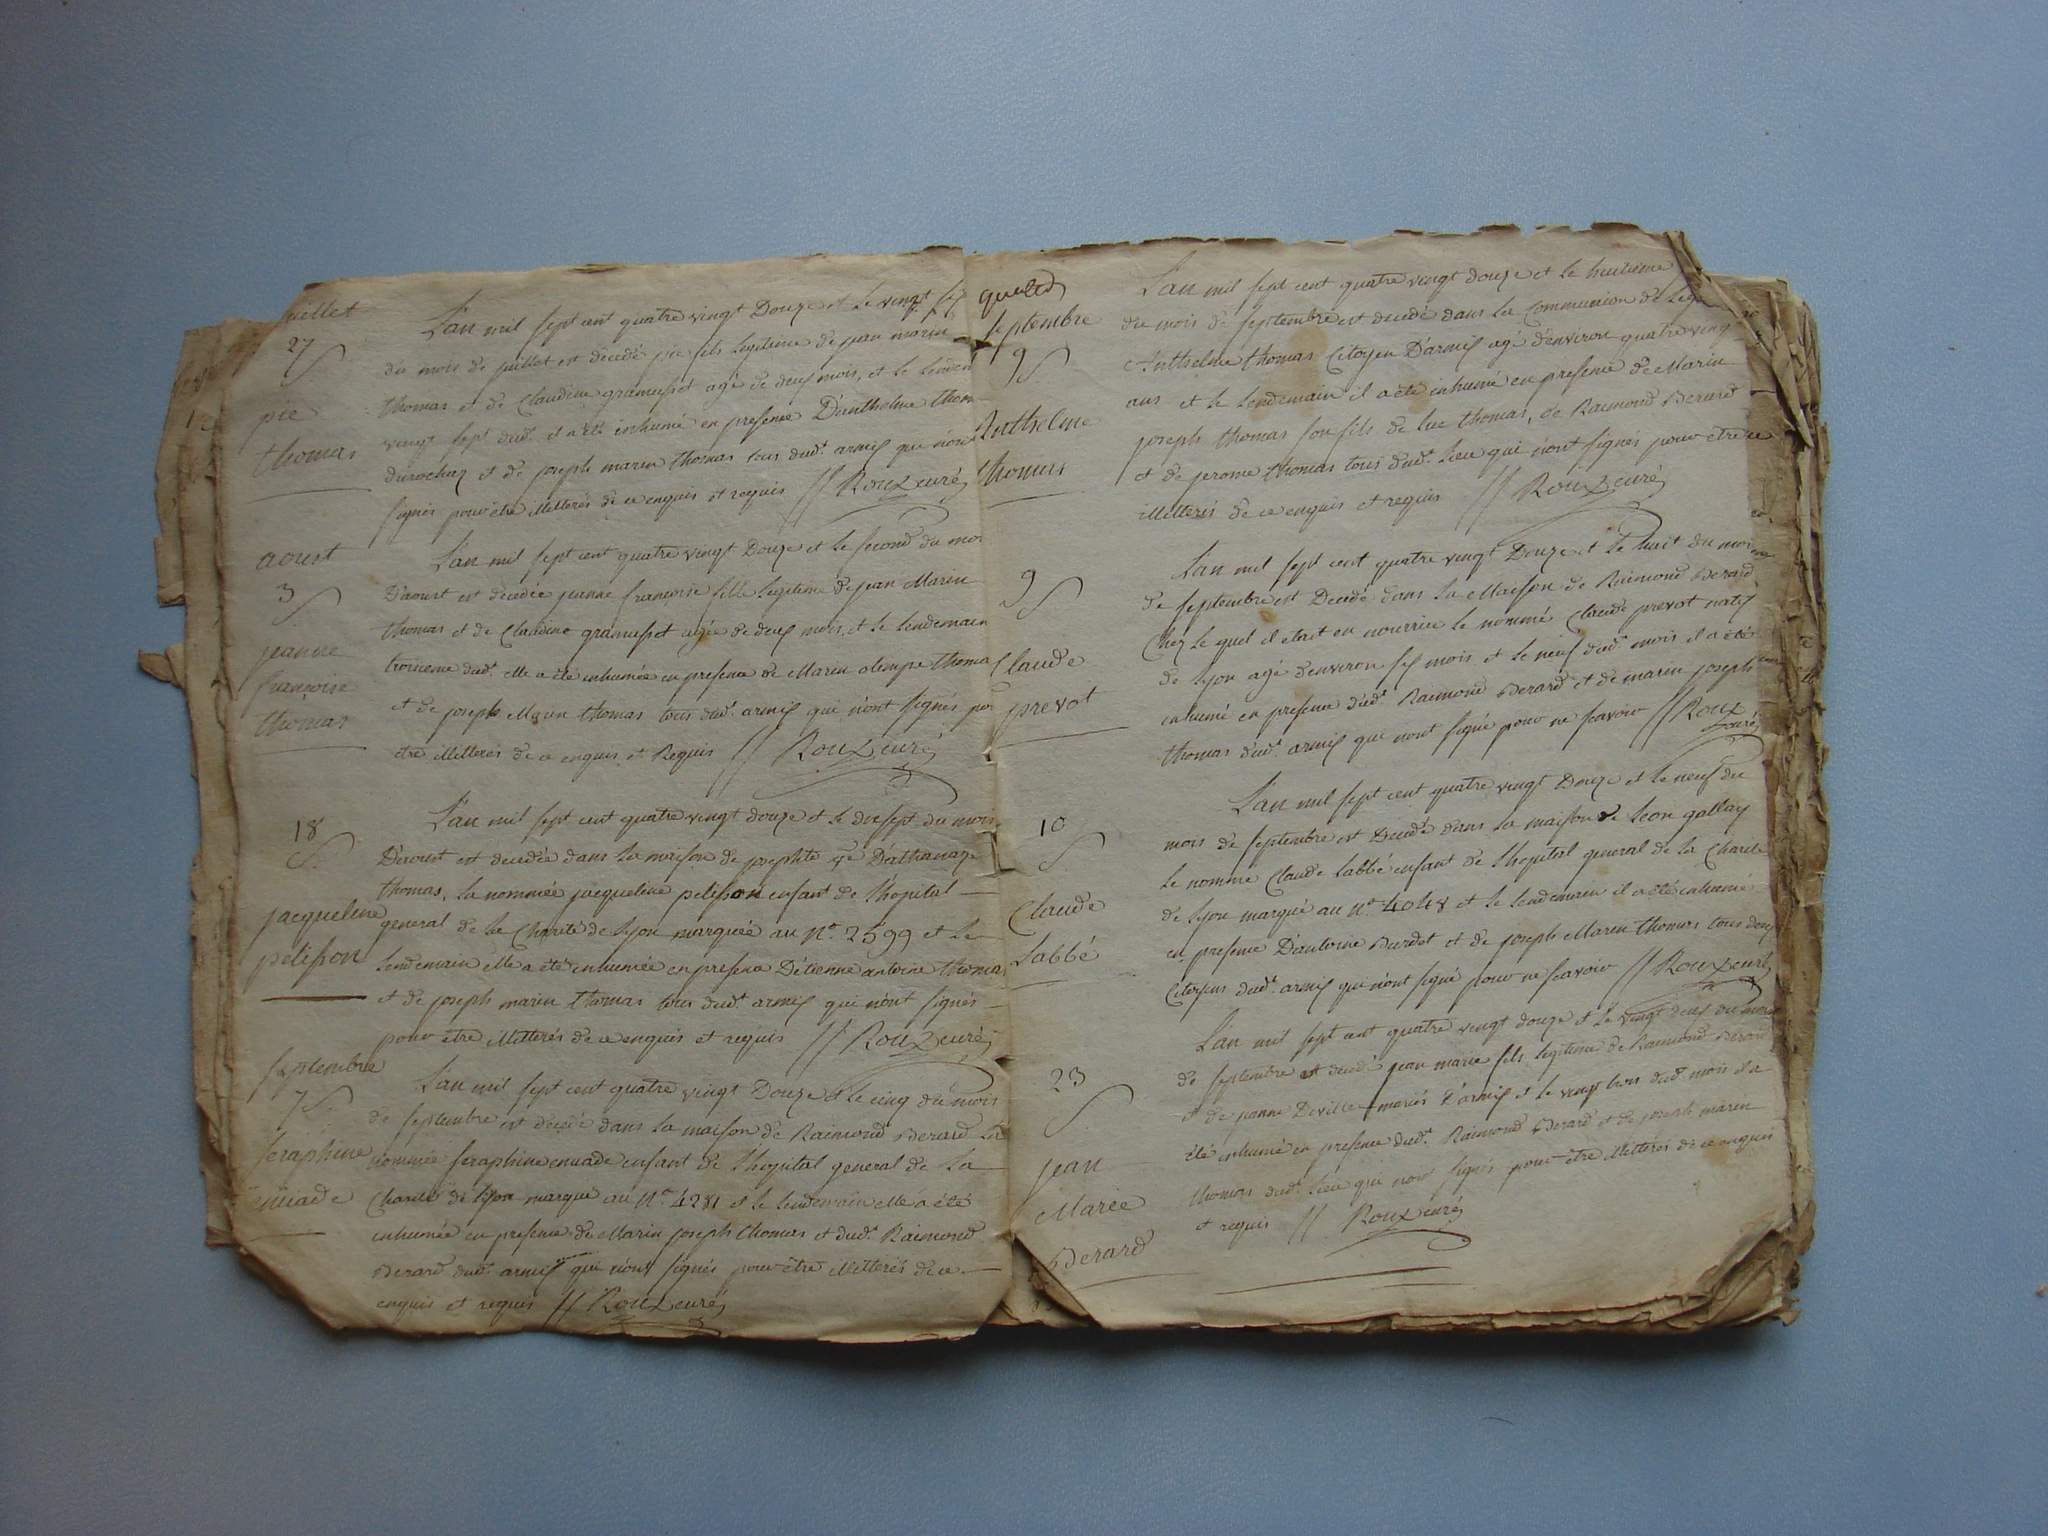 juillet
27
pie
thomas
L'an mil sept cent quatre vingt Douze et le vingt six
du mois de juillet est décédé pie fils legitime de jean marin
thomas et de Claudine gramusset agé de deux mois, et le lendem
vingt sept dud. il a été inhumé en presence D'anthelme thom
durochaz et de joseph marin thomas tous dud.t armix qui n'ont
signés pour être illetterés de ce enquis et requis // Roux curé
aoust
3
jeanne
françoise
thomas
L'an mil sept cent quatre vingt Douze et le second du moi
D'aoust est decedée jeanne françoise fille legitime de jean Marin
thomas et de Claudine gramusset agée de deux mois, et le lendemain
troisieme dud.t elle a été inhumée en presence de Marin olimpe thoma
et de joseph Marin thomas tous dud.t armix qui n'ont signés pou
etre illetterés de ce enquis et Requis // Roux curé
18
jacqueline
pelisson
L'an mil sept cent quatre vingt douze et le dix sept du mois
D'aoust est decedée dans la maison de josephte ve D'athanaze
thomas, la nommée jacqueline pelisson enfant de l'hopital
general de la Charité de lyon marquée au n.o 2599 et le
lendemain elle a été inhumée en presence D'etienne antoine thomas
et de joseph marin thomas tous dud.t armix qui n'ont signés
pour être illetterés de ce enquis et requis // Roux curé
septembre
7
seraphine
enuade
L'an mil sept cent quatre vingt Douze et le cinq du mois
de septembre est decedé dans la maison de Raimond Derard la
nommée seraphine enuade enfant de l'hopital general de la
Charité de lyon marqué au N.o 4281 et le lendemain elle a été
inhumée en presence de Marin joseph thomas et dud.t Raimond
Derard dud.t armix qui nont signés pour être illetterés de ce
enquis et requis // Roux curé
septembre
9
Anthelme
thomas
L'an mil sept cent quatre vingt douze et le huitieme
du mois de septembre est decedé dans la Communion de l'egl
Anthelme thomas Citoyen D'armix agé d'environ quatre ving
ans et le lendemain il a été inhumé en presence de Marin
joseph thomas son fils de luc thomas, de Raimond Derard
et de jerome thomas tous dud.t lieu qui n'ont signés pour être
illetterés de ce enquis et requis // Roux curé
9
Claude
prevot
L'an mil sept cent quatre vingt Douze et le huit du mois
de septembre est Decedé dans la Maison de Raimond Derard
Chez le quel il était en nourrice le nommé Claude prevot natif
de lyon agé d'environ six mois et le neuf dud.t mois il a été
inhumé en presence dud.t Raimond Derard et de marin joseph
thomas dud.t armix qui n'ont signé pour ne scavoir // Roux
curé
10
Claude
Labbé
L'an mil sept cent quatre vingt Douze et le neuf du
mois de septembre est Decedé dans la maison de leon gallay
le nommé Claude labbé enfant de l'hopital general de la Charité
de lyon marqué au N.o 4048 et le lendemain il a été inhumé
en presence D'antoine Burdet et de joseph Marin thomas tous deux
Citoyens dud.t armix qui n'ont signé pour ne scavoir // Roux curé
23
jean
Marie
Derard
L'an mil sept cent quatre vingt douze et le vingt deux du mois
de septembre est decedé jean marie fils legitime de Raimond Derard
et de jeanne Deville mariés D'armix et le vingt trois dud.t mois il a
été inhumé en presence dud.t Raimond Derard et de joseph marin
thomas dud.t lieu qui n'ont signés pour être illetterés de ce enquis
et requis // Roux curé